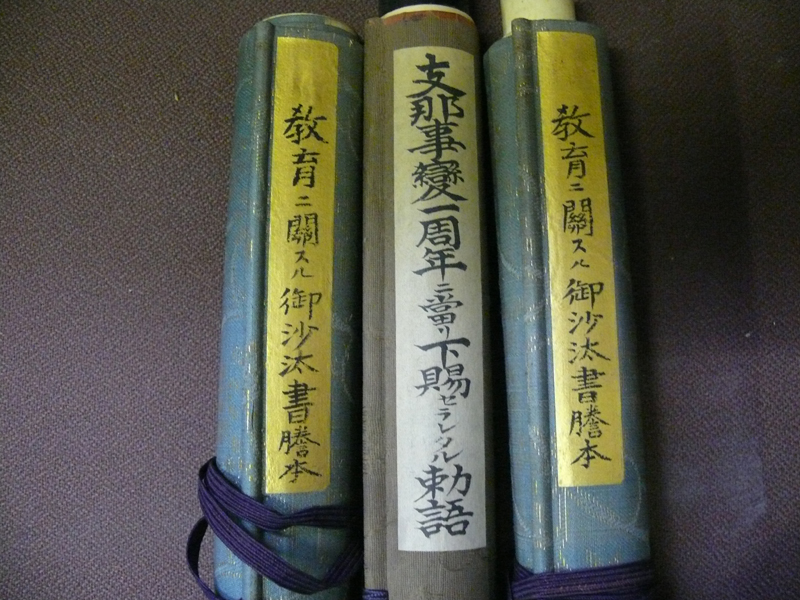 教育ニ關スル御沙汰書謄本
支那事變一周年ニ當リ下賜セラレタル勅語
教育ニ關スル御沙汰書謄本